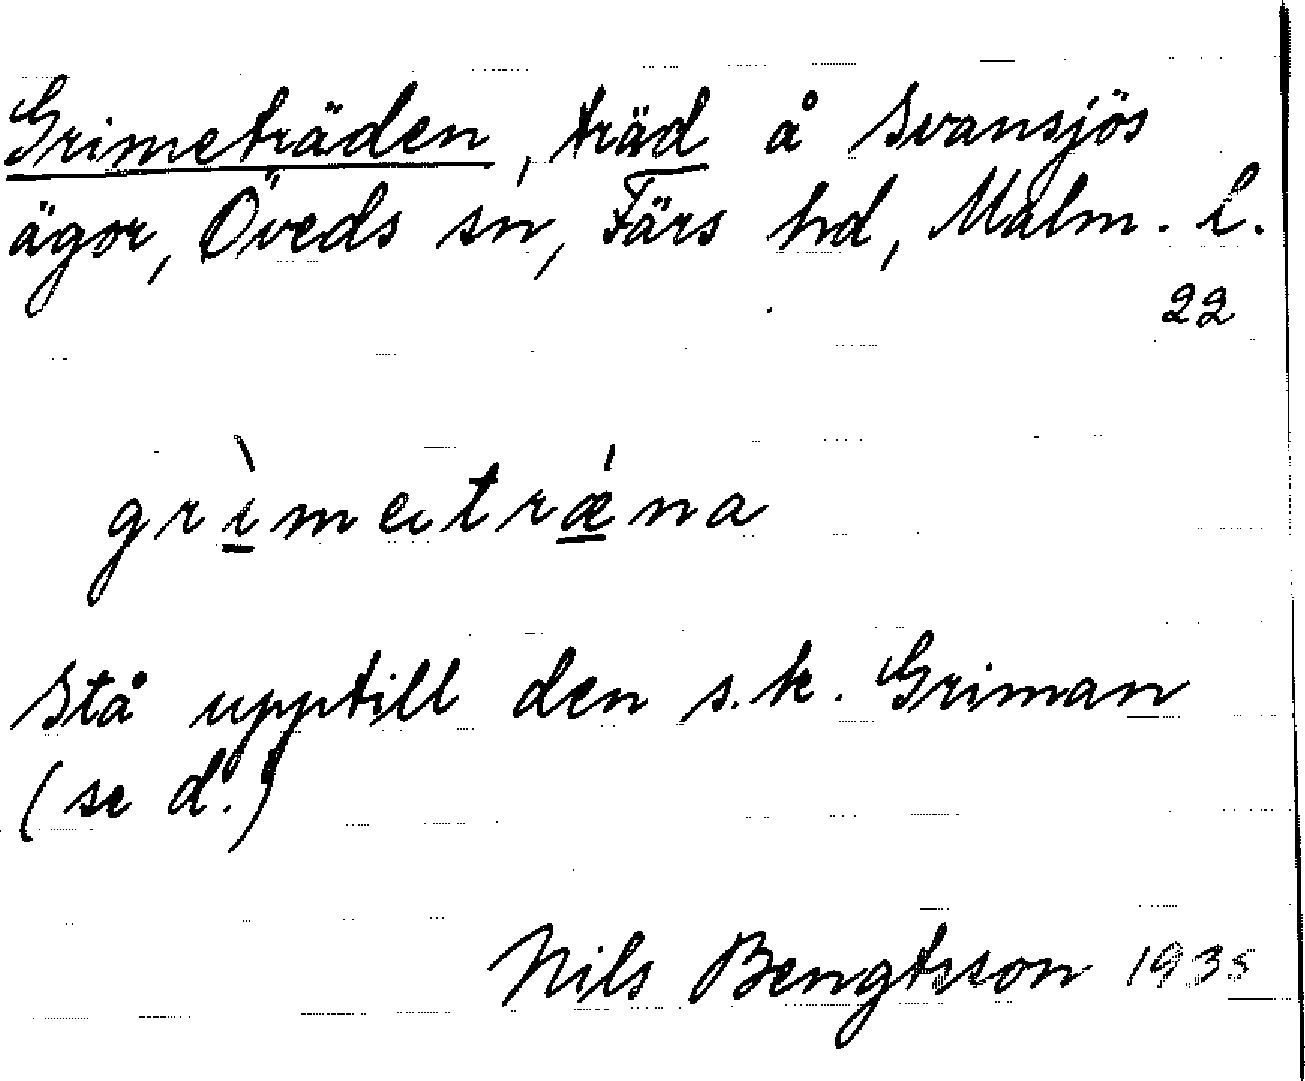 Grimeträden, träd å Svansjös
ägor, Öveds sn, Färs hd, Malm. l.
22
grìmeträ́na
Stå upptill den s.k. Griman
(se d.)
Nils Bengtsson 1935